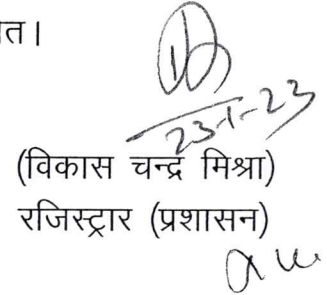 त।
23-1-23
(विकास चन्द्र मिश्रा)
रजिस्ट्रार (प्रशासन)